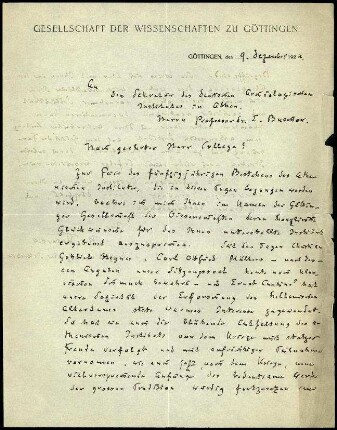 GESELLSCHAFT DER WISSENSCHAFTEN ZU GÖTTINGEN
GÖTTINGEN, den 9. Dezember 1924
An
den Sekretar des Deutschen Archäologischen
Institutes in Athen
Herrn Professor Dr. E. Buschor.
Hoch geehrter Herr College!
Zur Feier des fünfzigjährigen Bestehens des Athe-
nischen Institutes, die in diesen Tagen begangen werden
wird, beehre ich mich Ihnen im Namen der Göttin-
ger Gesellschaft der Wissenschaften deren herzlichste
Glückwünsche für das Ihnen unterstellte Institut
ergebenst auszusprechen. Seit den Tagen Christian
Gottlieb Heynes, Carl Otfried Müllers - und
den unser Sitzungssaal heute noch
Schmuck bewahrt - und Ernst Curtius' hat
unsere Sozietät der Erforschung des Hellenischen
Altertumes stets warmes Interesse zugewandt.
So hat sie auch die blühende Entfaltung des
Institutes vor dem Kriege mit stolzer
Freude verfolgt und mit aufrichtiger Teilnahme
vernommen, wie auch jetzt nach dem Kriege, neue
vielversprechende Anfänge des
der grossen Tradition würdig fortzusetzen